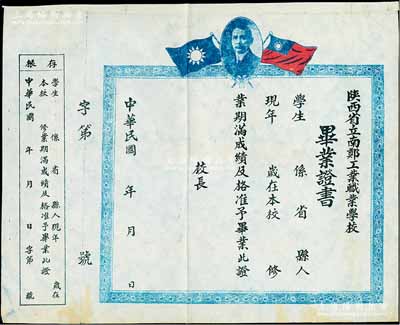 陕西省立南鄭工業職業學校
畢業證書
學生 係 省 縣人
現年 歲在本校 修
業期滿成績及格准予畢業此證
校長
中華民國 年 月 日
字第 號
存根
學生 係 省 縣人現年 歲在
本校 修業期滿成績及格准予畢業此證
中華民國 年 月 日 字第 號